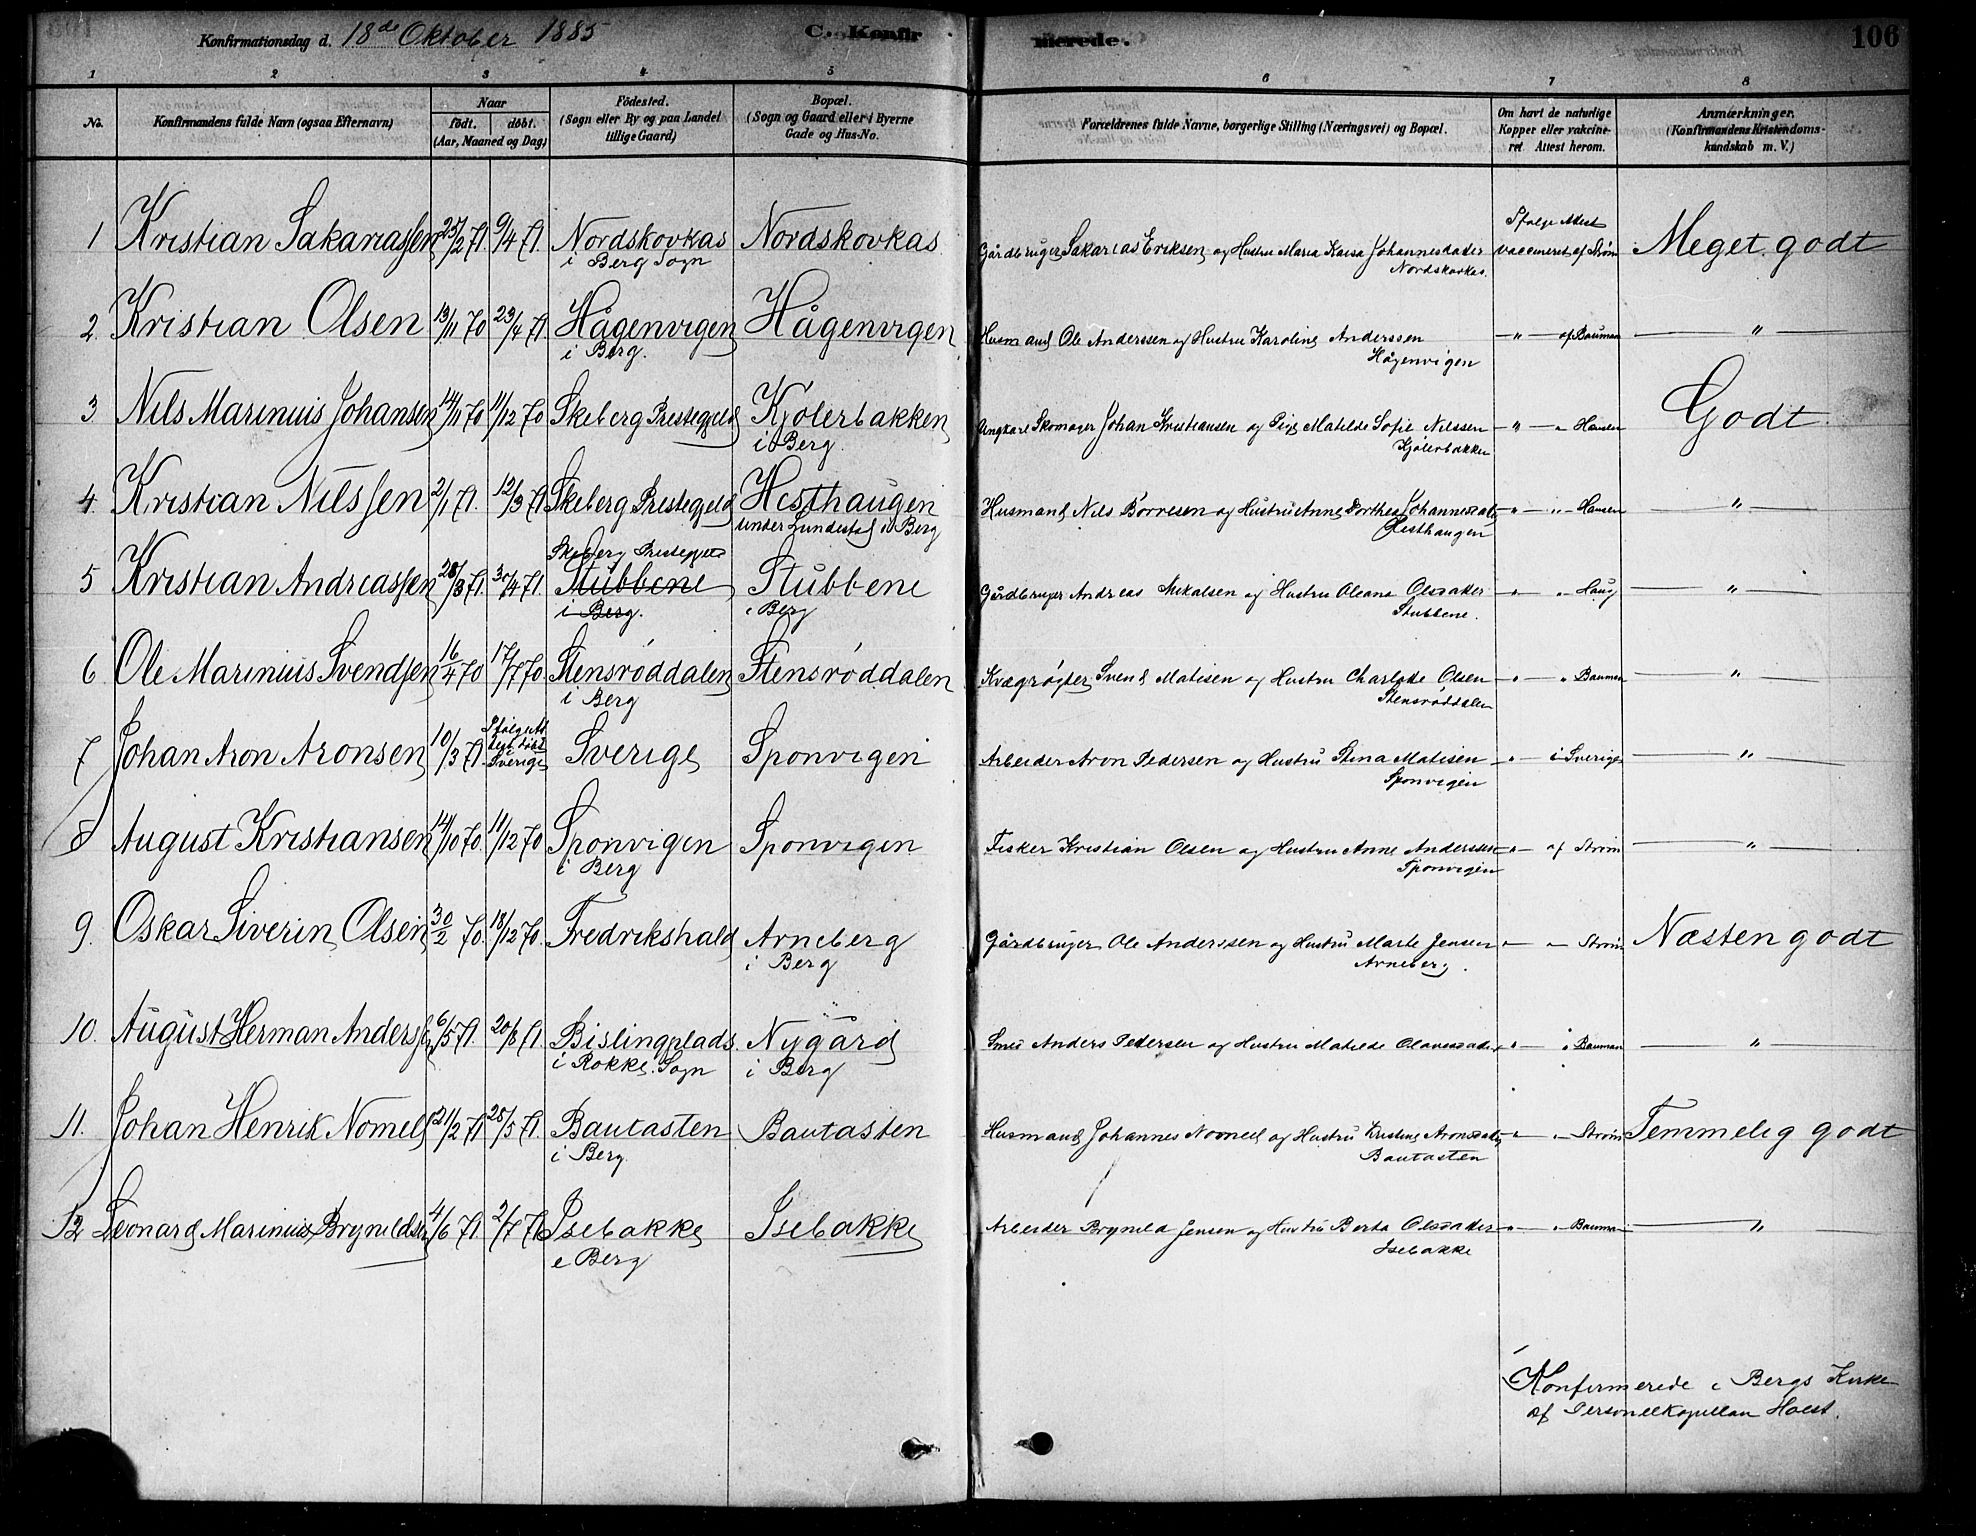 Konfirmationsdag d. 18de Oktober 1885
C. Konfir
merede.
106
1 2 3 4 5 6 7 8
No.
Konfirmandens fulde Navn (ogsaa Efternavn)
Naar
født. døbt.
(Aar, Maaned og Dag)
Fødested.
(Sogn eller By og paa Landet
tillige Gaard)
Bopæl.
(Sogn og Gaard eller i Byerne
Gade og Hus-No.
Forældrenes fulde Navne, borgerlige Stilling (Næringsvei) og Bopæl.
Om havt de naturlige
Kopper eller vakcine-
ret Attest herom.
Anmærkninger.
(Konfirmandens Kristendoms-
kundskab m. V.)
1 Kristian Sakariassen 25/2 71. 9/4 71. Nordskovkas Nordskovkas
i Berg Sogn
Gårdbruger Sakarias Eriksen og Hustru Maria Kaisa Johannesdader
Nordskovkas.
Ifølge Attest
vaccineret af Strøm Meget godt
2. Kristian Olsen 13/11 70 23/4 71. Hågenvigen Hågenvigen
i Berg.
Husmand Ole Anderssen og Hustru Karoline Anderssen
Hågenvigen
— " — af Bauman — " —
3 Nils Marinius Johansen 14/11 70 11/12 70 Skeberg Prestegjeld Kjølerbakken
i Berg.
Ungkarl Skomager Johan Kristiansen og Pige Matilde Sofie Nilssen
Kjølerbakken
— " — " Hansen Godt.
4. Kristian Nilssen 2/1 71. 12/3 71 Skeberg Prestegjeld Hesthaugen
under Lundestad i Berg
Husmand Nils Børresen og Hustru Anne Dorthea Johannesdatr
Hesthaugen
" — " — Hansen — " —
5 Kristian Andreassen 28/3 71. 30/4 71. Skeberg Prestegjeld
Stubbene Stubbene
i Berg. i Berg
Gårdbruger Andreas Mikalsen og Hustru Oleana Olsdader
Stubbene.
— " — " Haug — " —
6 Ole Marinius Svendsen 16/4 70 17/7 70. Stensrøddalen Stensrøddalen
i Berg
Kvægrøgter Svend Matisen og Hustru Charlotte Olsen
Stensrøddalen
" — " Bauman — " —
7 Johan Aron Aronsen 10/3 71. Ifølge At
test døbt
i Sverige Sverige Sponvigen
Arbeider Aron Pedersen og Hustru Stina Matisen
Sponvigen
— " — i Sverige — " —
8 August Kristiansen 14/10 70. 11/12 70 Sponvigen Sponvigen
i Berg
Fisker Kristian Olsen og Hustru Anne Anderssen
Sponvigen
— " — af Strøm — " —
9. Oskar Siverin Olsen 30/2 70. 18/12 70. Fredrikshald Arneberg
i Berg
Gårdbruger Ole Anderssen og Hustru Marte Jensen
Arneberg.
" — " Strøm Næsten godt
10. August Herman Anderssen 6/5 71. 20/8 71. Bislingplads Nygård
i Rokke Sogn i Berg
Smed Anders Pedersen og Hustru Matilde Olavesdader
" — " Bauman — " —
11. Johan Henrik Nomell 21/2 71 28/5 71. Bautasten Bautasten
i Berg.
Husmand Johannes Nomell og Hustru Kristine Aronsdatr
Bautasten
" — " Strøm Temmelig godt
12 Leonard Marinius Bryneldsen 4/6 71. 2/7 71. Isebakke Isebakke
i Berg
Arbeider Bryneld Jensen og Hustru Berta Olesdader
Isebakke
" — " Bauman — " —
Konfirmerede i Bergs Kirke
af Personelkapellan Holst.